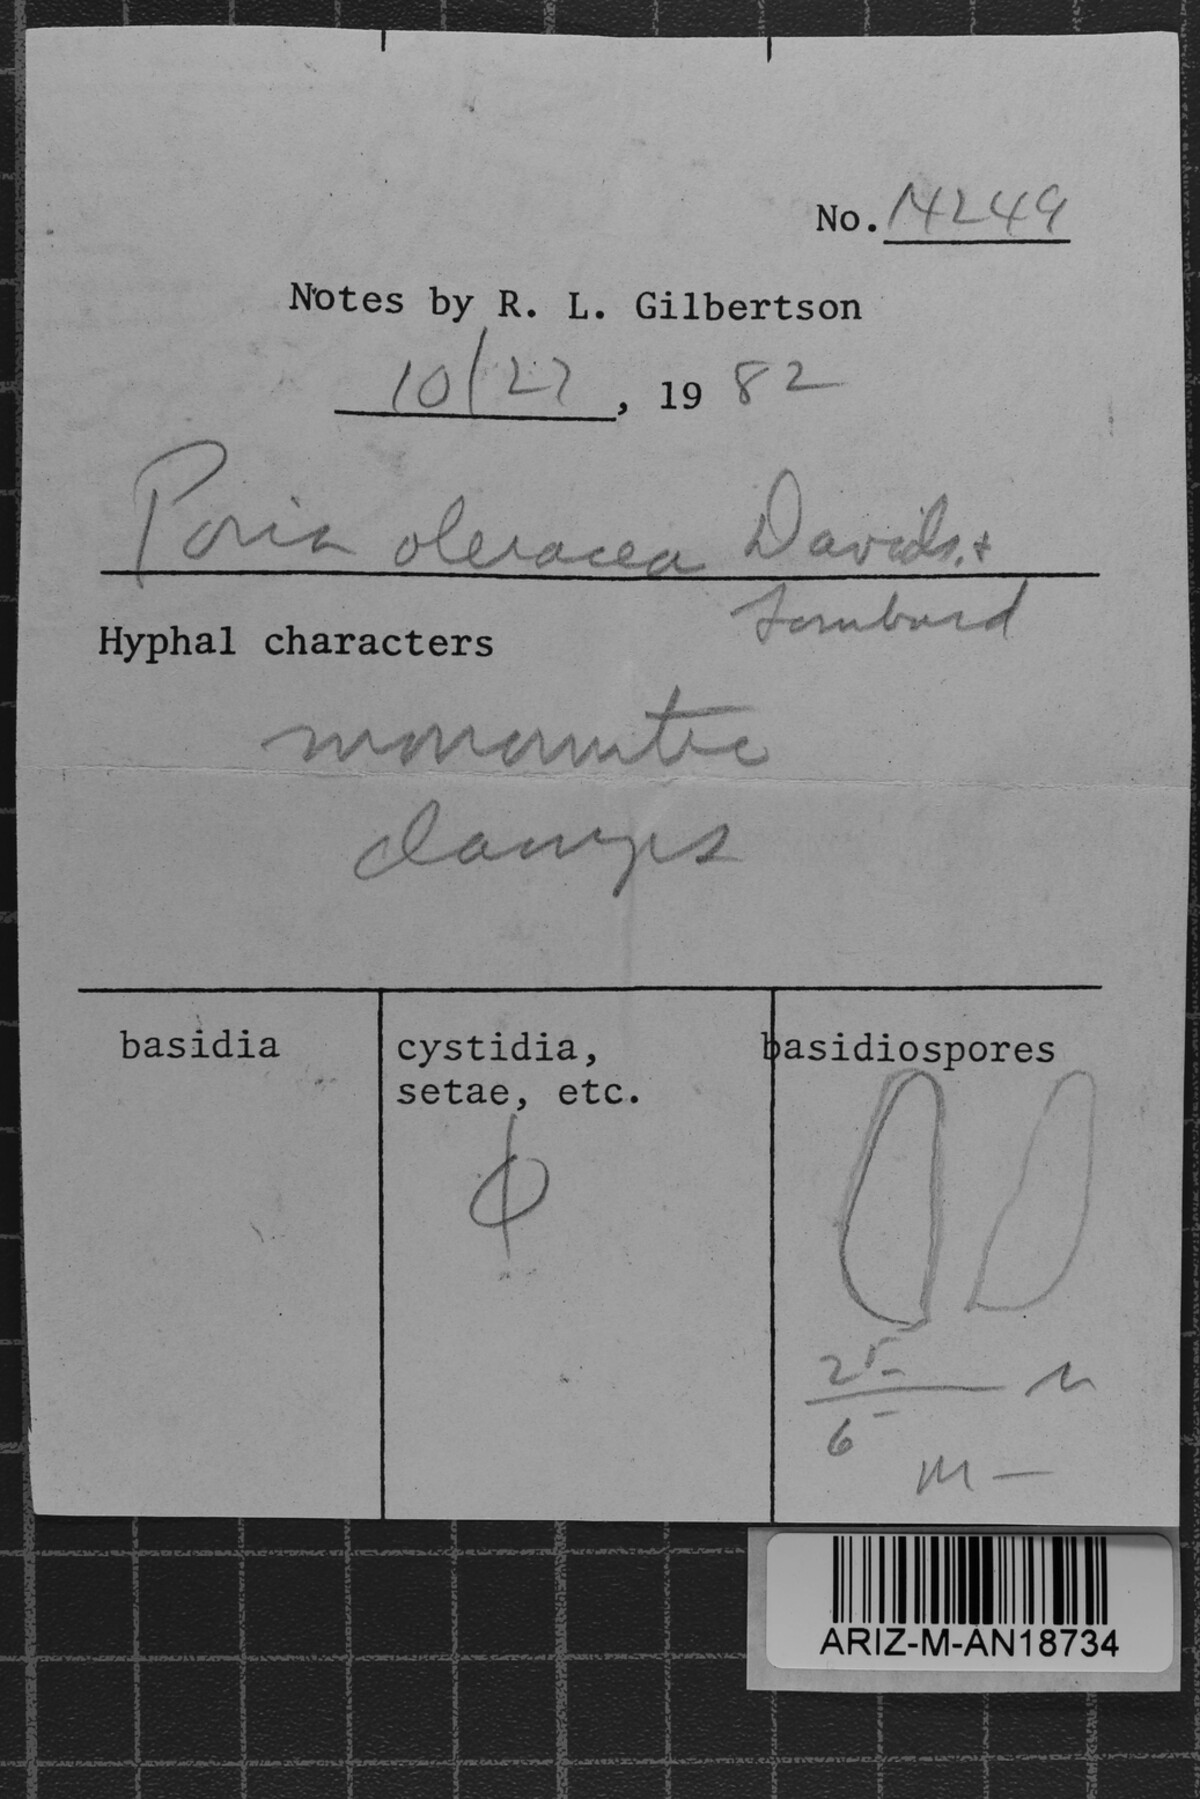 No. 14249
Notes by R. L. Gilbertson
10/27, 19 82
Poria oleracea Davids. +
Lombard
Hyphal characters
monomitic
clamps
basidia
cystidia,
setae, etc.
basidiospores
ϕ
25
6
M –
ARIZ-M-AN18734